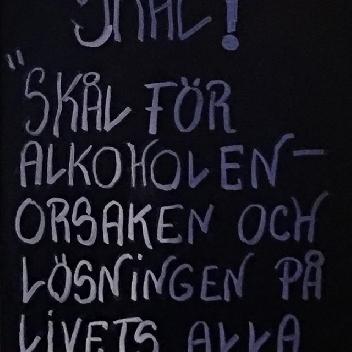 SKÅL!
"SKÅL FÖR
ALKOHOLEN-
ORSAKEN OCH
LÖSNINGEN PÅ
LIVETS ALLA